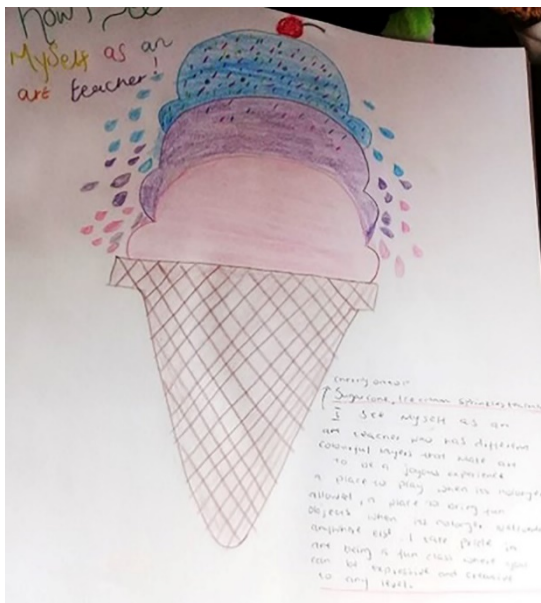 How I see
Myself as an
art teacher!
cherry on top
Sugar cone, Ice cream, sprinkles
I see myself as an
art teacher who has different
colourful layers that make art
to be a joyous experience
a place to play when its no longer
allowed, a place to bring fun
objects when its no longer
anywhere else. I take pride in
art being a fun class where you
can be expressive and creative
to any level.